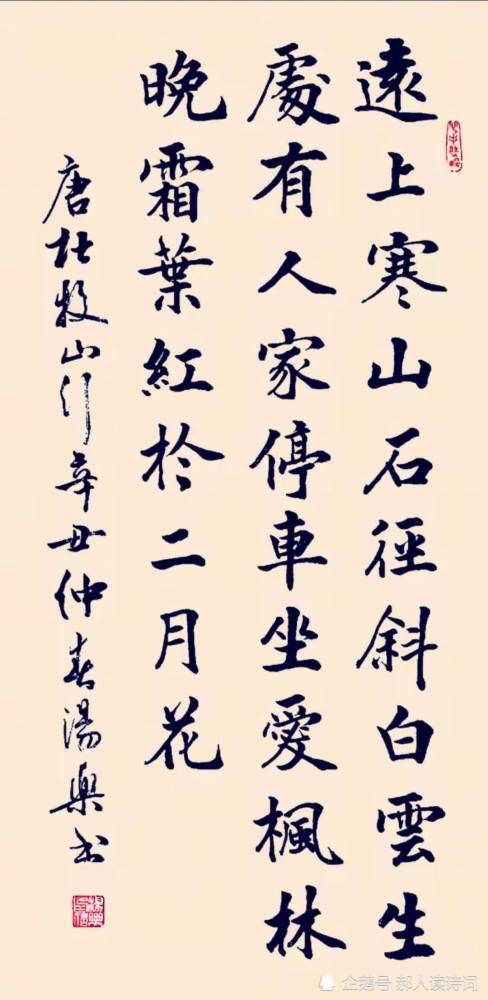 遠上寒山石徑斜白雲生
處有人家停車坐愛楓林
晚霜葉紅於二月花
唐杜牧山行辛丑仲春湯興书
企鹅号 郝人读诗词